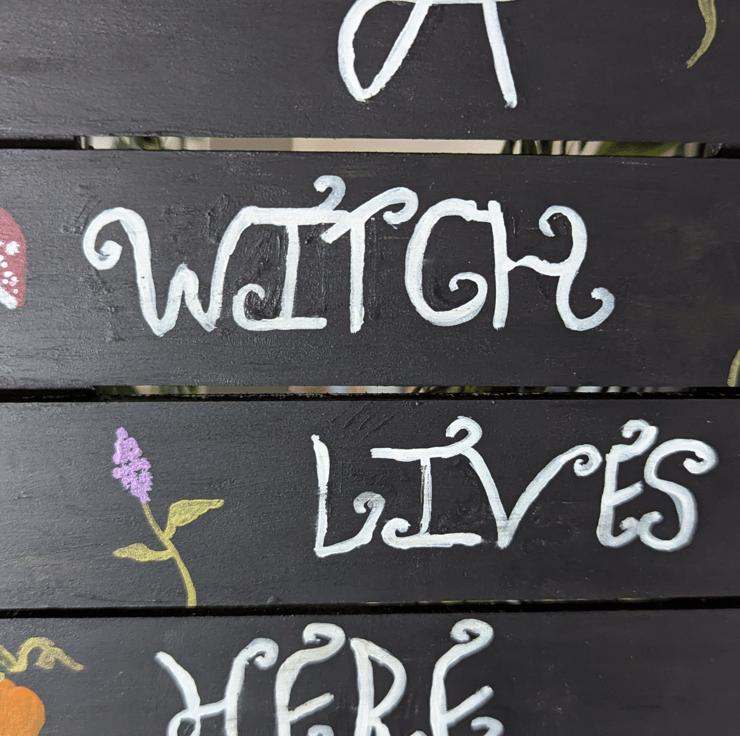 A
WITCH
LIVES
HERE